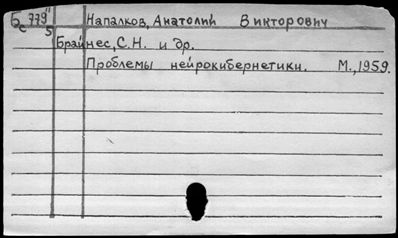 Б 779" Напалков, Анатолий Викторович
с 5
Брайнес, С.Н. и др.
Проблемы нейрокибернетики. М., 1959.